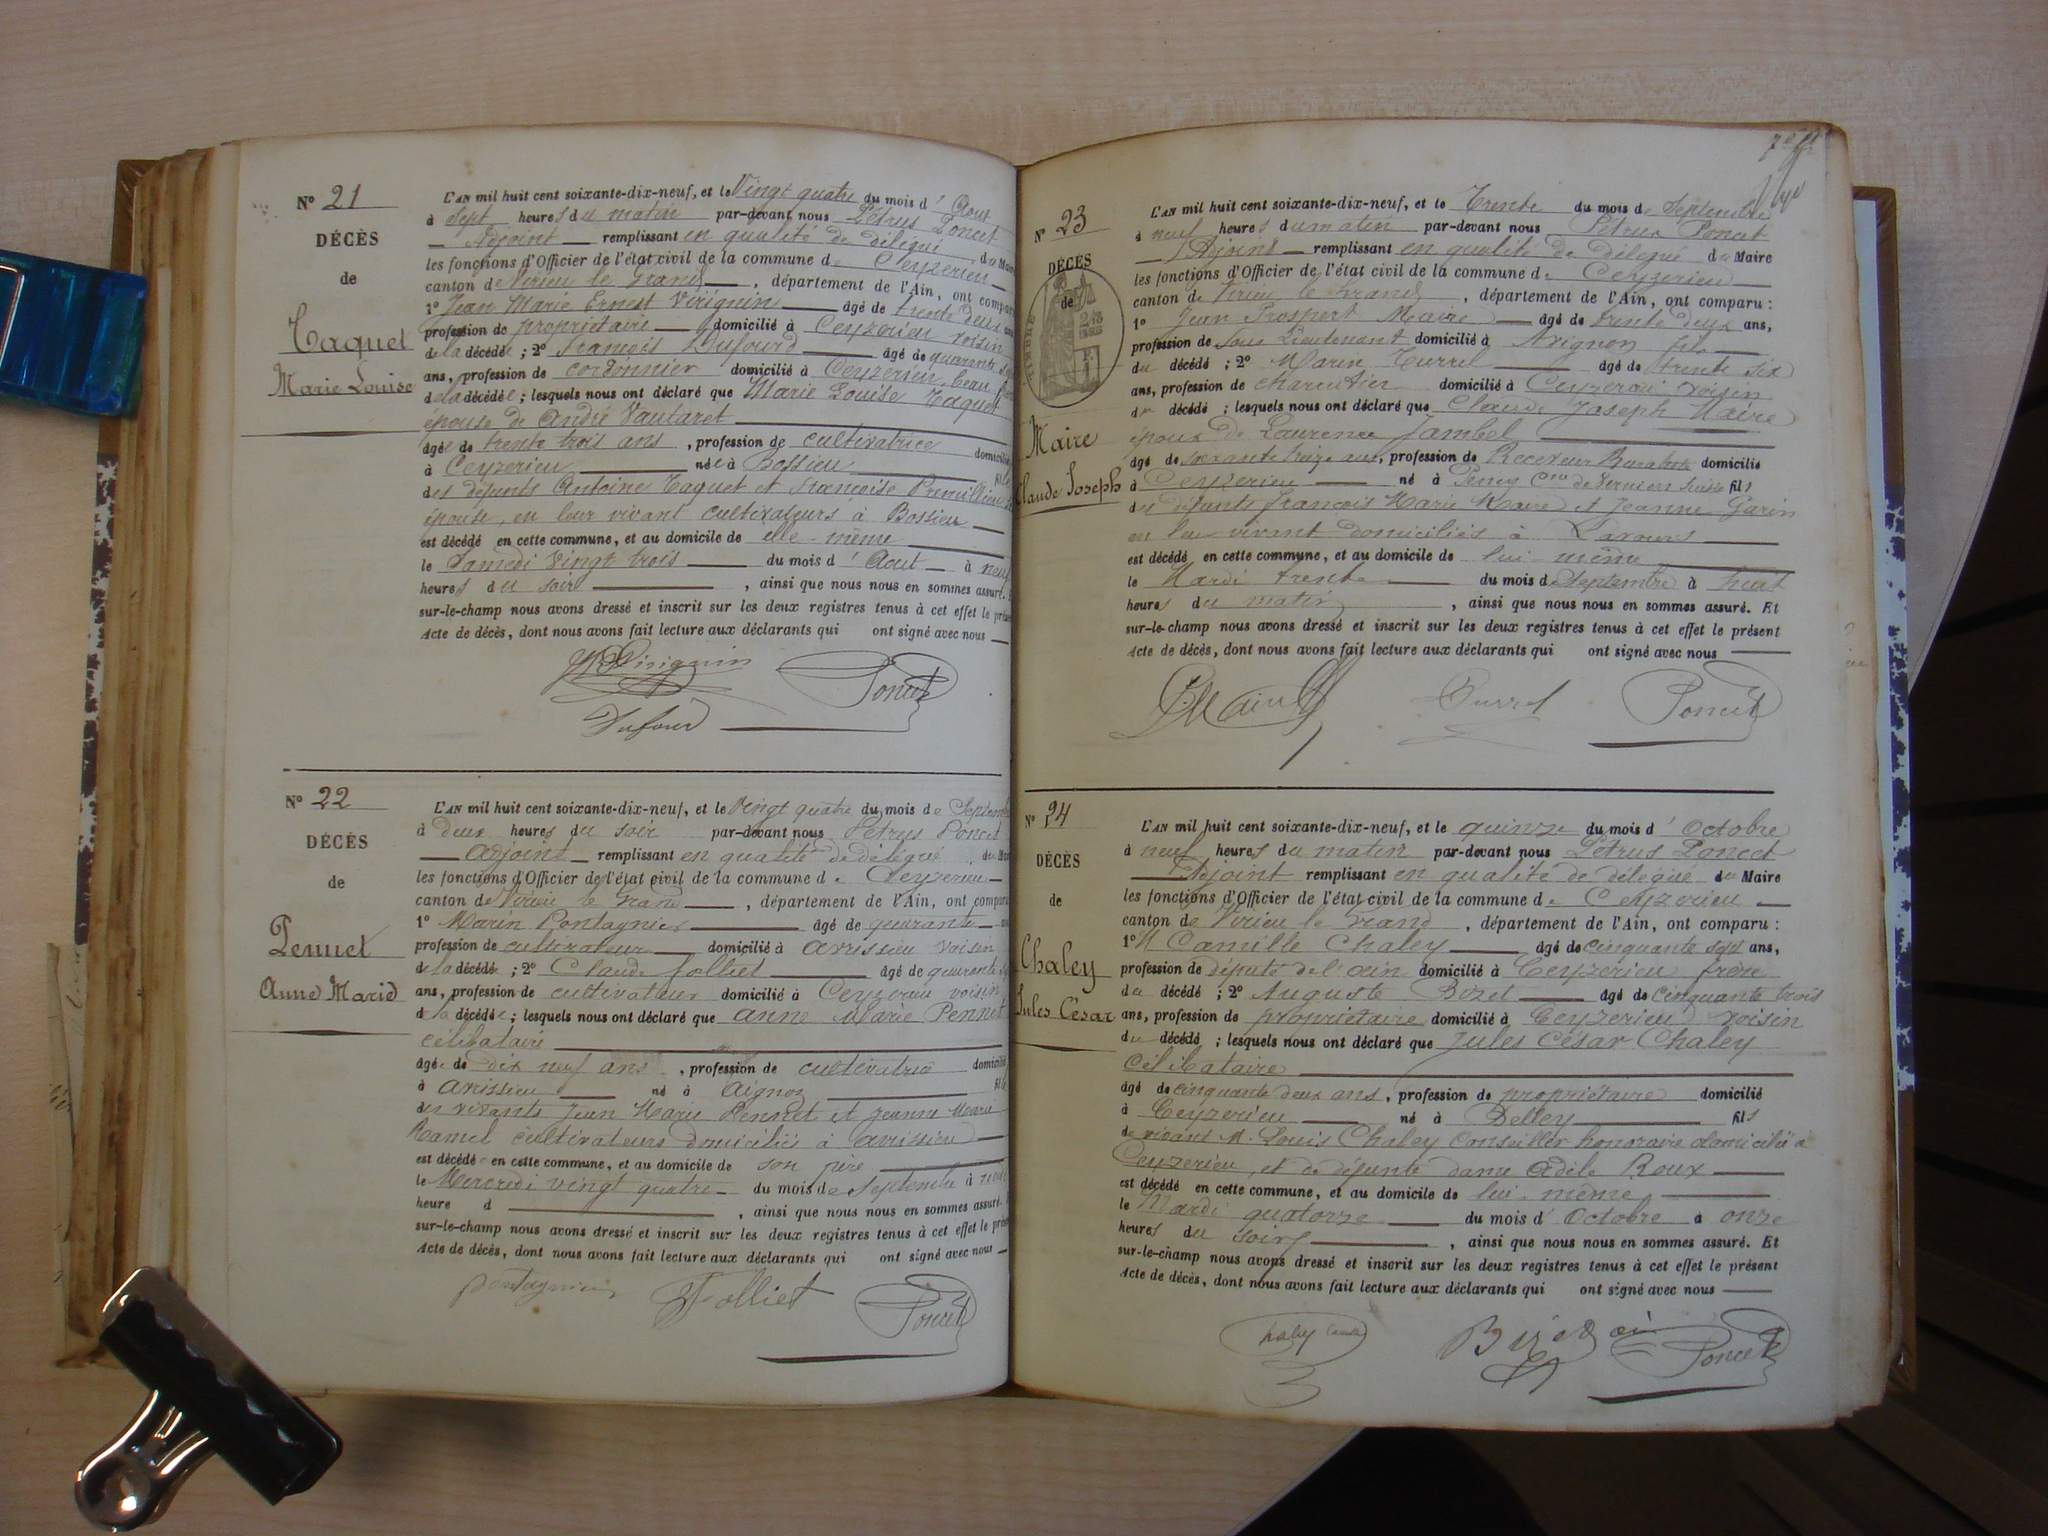 Nº 21
DÉCÈS
de
Taquet
Marie Louise
L'AN mil huit cent soixante-dix-neuf, et le Vingt quatre du mois d' Aout
à sept heures du matin par-devant nous Pétrus Poncet
Adjoint remplissant en qualité de délégué du Maire
les fonctions d'Officier de l'état civil de la commune de Ceyzerieu
canton de Virieu le Grand, département de l'Ain, ont comparu
1º Jean Marie Ernest Virignin âgé de trente deux ans
profession de propriétaire domicilié à Ceyzerieu voisin
de la décédée ; 2º François Dufourd âgé de quarante
ans, profession de cordonnier domicilié à Ceyzerieu, beau
de la décédée ; lesquels nous ont déclaré que Marie Louise Taquet
épouse de André Vautaret
âgée de trente trois ans, profession de cultivatrice domicilié
à Ceyzerieu née à Bossieu fille
des défunts Antoine Taquet et Françoise
épouse, en leur vivant cultivateurs à Bossieu
est décédé en cette commune, et au domicile de elle-même
le Samedi vingt trois du mois d' Aout à neuf
heures du soir, ainsi que nous nous en sommes assuré.
sur-le-champ nous avons dressé et inscrit sur les deux registres tenus à cet effet le
Acte de décès, dont nous avons fait lecture aux déclarants qui ont signé avec nous
Virignin
Poncet
Dufour
Nº 22
DÉCÈS
de
Pennet
Anne Marie
L'AN mil huit cent soixante-dix-neuf, et le Vingt quatre du mois de Septembre
à deux heures du soir par-devant nous Pétrus Poncet
adjoint remplissant en qualité de délégué du
les fonctions d'Officier de l'état civil de la commune de Ceyzerieu
canton de Virieu le Grand, département de l'Ain, ont comparu
1º Marin Pontagnier âgé de quarante
profession de cultivateur domicilié à avrissieu voisin
de la décédée ; 2º Claude Jolliet âgé de quarante
ans, profession de cultivateur domicilié à Ceyzerieu voisin
de la décédée ; lesquels nous ont déclaré que anne Marie Pennet
célibataire
âgée de dix neuf ans, profession de cultivatrice domicilié
à avrissieu né à Aignoz fille
des vivants Jean Marie Pennet et Jeanne Marie
Ramel cultivateurs domiciliés à avrissieu
est décédée en cette commune, et au domicile de son père
le Mercredi vingt quatre du mois de Septembre à
heure d, ainsi que nous nous en sommes assuré.
sur-le-champ nous avons dressé et inscrit sur les deux registres tenus à cet effet le
Acte de décès, dont nous avons fait lecture aux déclarants qui ont signé avec nous
Pontagnier
Jolliet
Poncet
Nº 23
DÉCÈS
de
TIMBRE
Maire
Claude Joseph
L'AN mil huit cent soixante-dix-neuf, et le Trente du mois de Septembre
à neuf heures du matin par-devant nous Pétrus Poncet
Adjoint remplissant en qualité de délégué du Maire
les fonctions d'Officier de l'état civil de la commune de Ceyzerieu
canton de Virieu le Grand, département de l'Ain, ont comparu :
1º Jean Prospert Maire âgé de trente deux ans,
profession de Sous Lieutenant domicilié à Avignon fils
du décédé ; 2º Marin Turrel âgé de trente six
ans, profession de charcutier domicilié à Ceyzerieu voisin
du décédé ; lesquels nous ont déclaré que Claude Joseph Maire
époux de Laurence Jambel
âgé de soixante treize ans, profession de Receveur Buraliste domicilié
à Ceyzerieu né à Peney Cne de Verniers Suisse fils
des défunts François Marie Maire et Jeanne Garin
en leur vivant domiciliés à Lavours
est décédé en cette commune, et au domicile de lui même
le Mardi trente du mois de Septembre à huit
heures du matin, ainsi que nous nous en sommes assuré. Et
sur-le-champ nous avons dressé et inscrit sur les deux registres tenus à cet effet le présent
Acte de décès, dont nous avons fait lecture aux déclarants qui ont signé avec nous
Maire
Turrel
Poncet
Nº 24
DÉCÈS
de
Chaley
Jules César
L'AN mil huit cent soixante-dix-neuf, et le quinze du mois d' Octobre
à neuf heures du matin par-devant nous Pétrus Poncet
Adjoint remplissant en qualité de délégué du Maire
les fonctions d'Officier de l'état civil de la commune de Ceyzerieu
canton de Virieu le Grand, département de l'Ain, ont comparu :
1º M Camille Chaley âgé de cinquante sept ans,
profession de député de l'ain domicilié à Ceyzerieu frère
du décédé ; 2º Auguste Bozet âgé de cinquante trois
ans, profession de propriétaire domicilié à Ceyzerieu voisin
du décédé ; lesquels nous ont déclaré que Jules César Chaley
Célibataire
âgé de cinquante deux ans, profession de propriétaire domicilié
à Ceyzerieu né à Belley fils
de vivant M. Louis Chaley Conseiller honoraire domicilié à
Ceyzerieu, et de défunte dame Adèle Roux
est décédé en cette commune, et au domicile de lui même
le Mardi quatorze du mois d' Octobre à onze
heures du soir, ainsi que nous nous en sommes assuré. Et
sur-le-champ nous avons dressé et inscrit sur les deux registres tenus à cet effet le présent
Acte de décès, dont nous avons fait lecture aux déclarants qui ont signé avec nous
Chaley Camille
Poncet